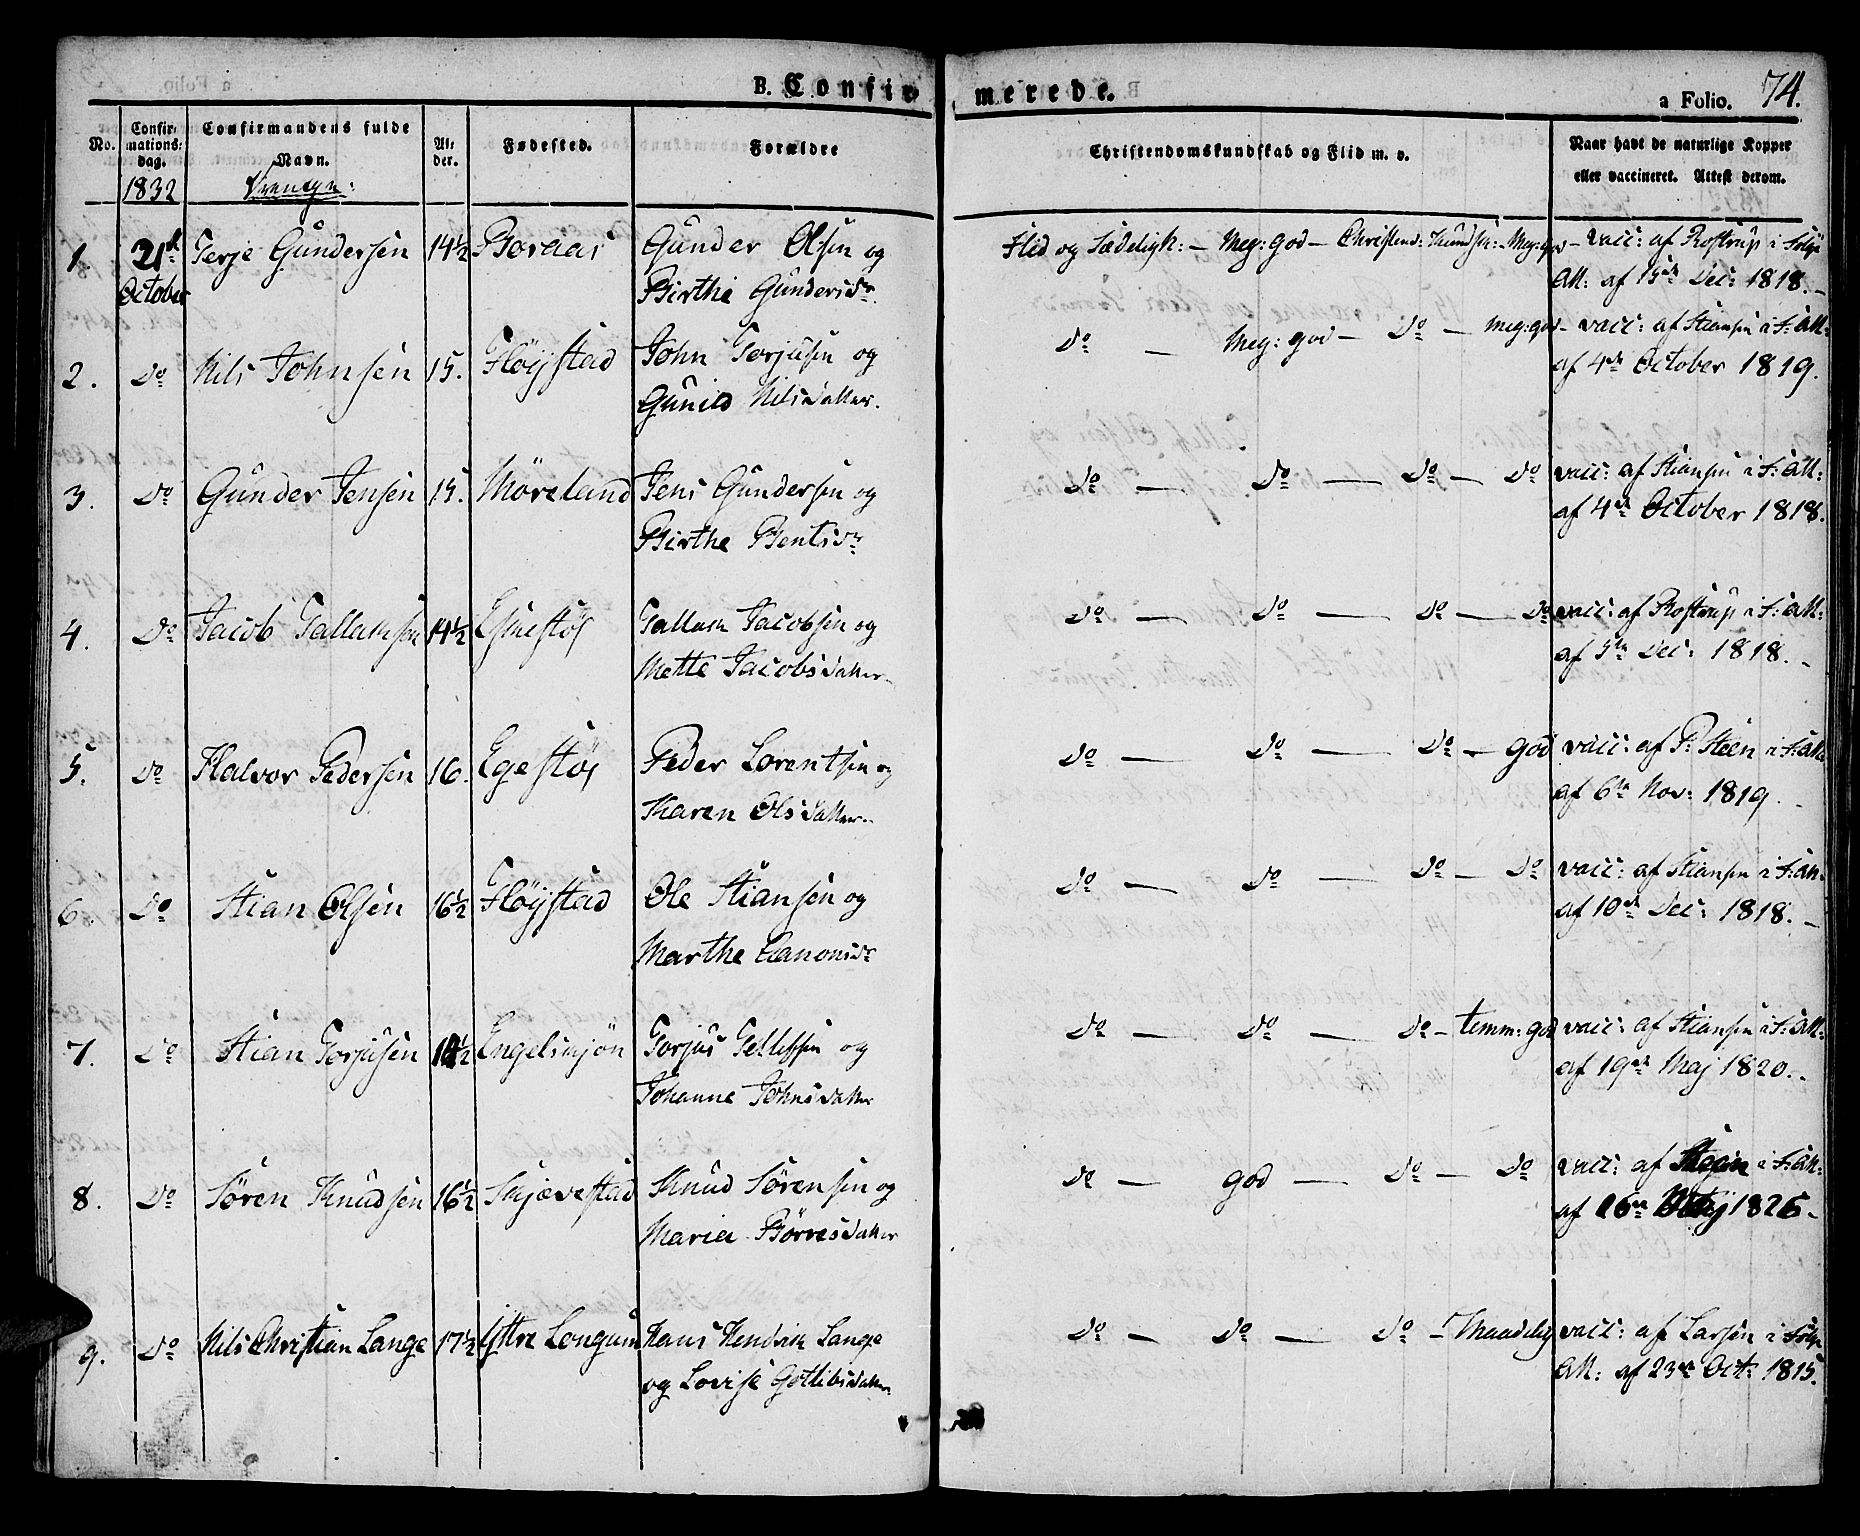 B. Confirmerede.
a Folio. 74.
No. Confirmations-dag. Confirmandens fulde Navn. Alder. Fødested. Forældre Christendomskundskab og Flid m. v. Naar havt de naturlige Kopper eller vaccineret. Attest derom.
1832
1. 21de October Terje Gundersen 14½ Boraas Gunder Olsen og Flid og Sædeligh: — Meg: god — Christend: Kundsk: — Meg: god — vacc: af Rostrup i Følge
Birthe Gundersdr. Att: af 15de Dec: 1818. —
2. do Nils Johnsen 15. Fløystad John Torjusen og do — Meg: god — do — meg: god — vacc: af Stiansen i F: Att:
Gunild Nilsdatter. af 4de October 1819.
3. do Gunder Jensen 15. Møreland Jens Gundersen og do — do — do — do vacc: af Stiansen i F: Att:
Birthe Bentsdr af 4de October 1818.
4. do Jacob Tallaksen 14½ Tallak Jacobsen og do — do — do — do vacc: af Rostrup i F: Att:
Mette Jacobsdatter. af 5te Dec: 1818. —
5. do Halvor Pedersen 16. Egestøl Peder Lorentsen og do — do — do — god vacc: af P: Steen i F: Att:
Karen Olsdatter. af 6te Nov: 1819. —
6. do Stian Olsen 16½ Fløystad Ole Stiansen og do — do — do — do vacc: af Stiansen i F: Att:
Marthe Aanonsdr af 10de Dec: 1818. —
7. do Stian Torjusen Engelsmjøn Torjus Tellefsen og do — do — do — temm: god vacc: af Stiansen i F: Att:
Johanne Johnsdatter af 19de Maj 1820. —
8. do Søren Knudsen 16½ Skjævestad Knud Sørensen og do — god — do — do vacc: af i F: Att:
Maria Børresdatter af 1826. —
9. do Nils Christian Lange 17½ Østre Longum Hans Hendrik Lange do — do — do — Maadelig vacc: af Larsen i Følge
og Lovise Gotlibsdatter. Att: af 23de Oct: 1815.